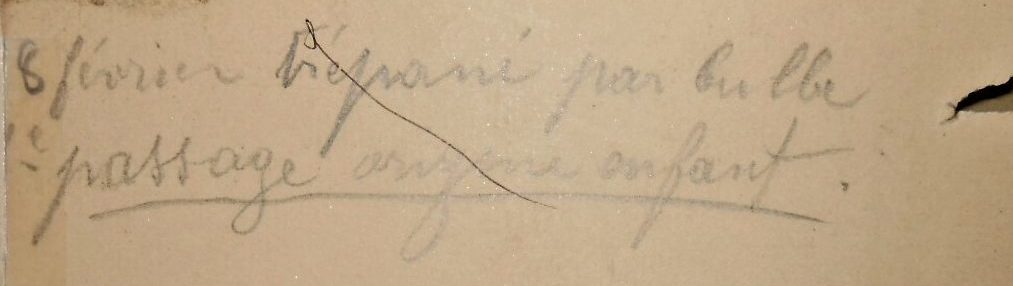 8 février trépané par bulbe
1e passage origine enfant.